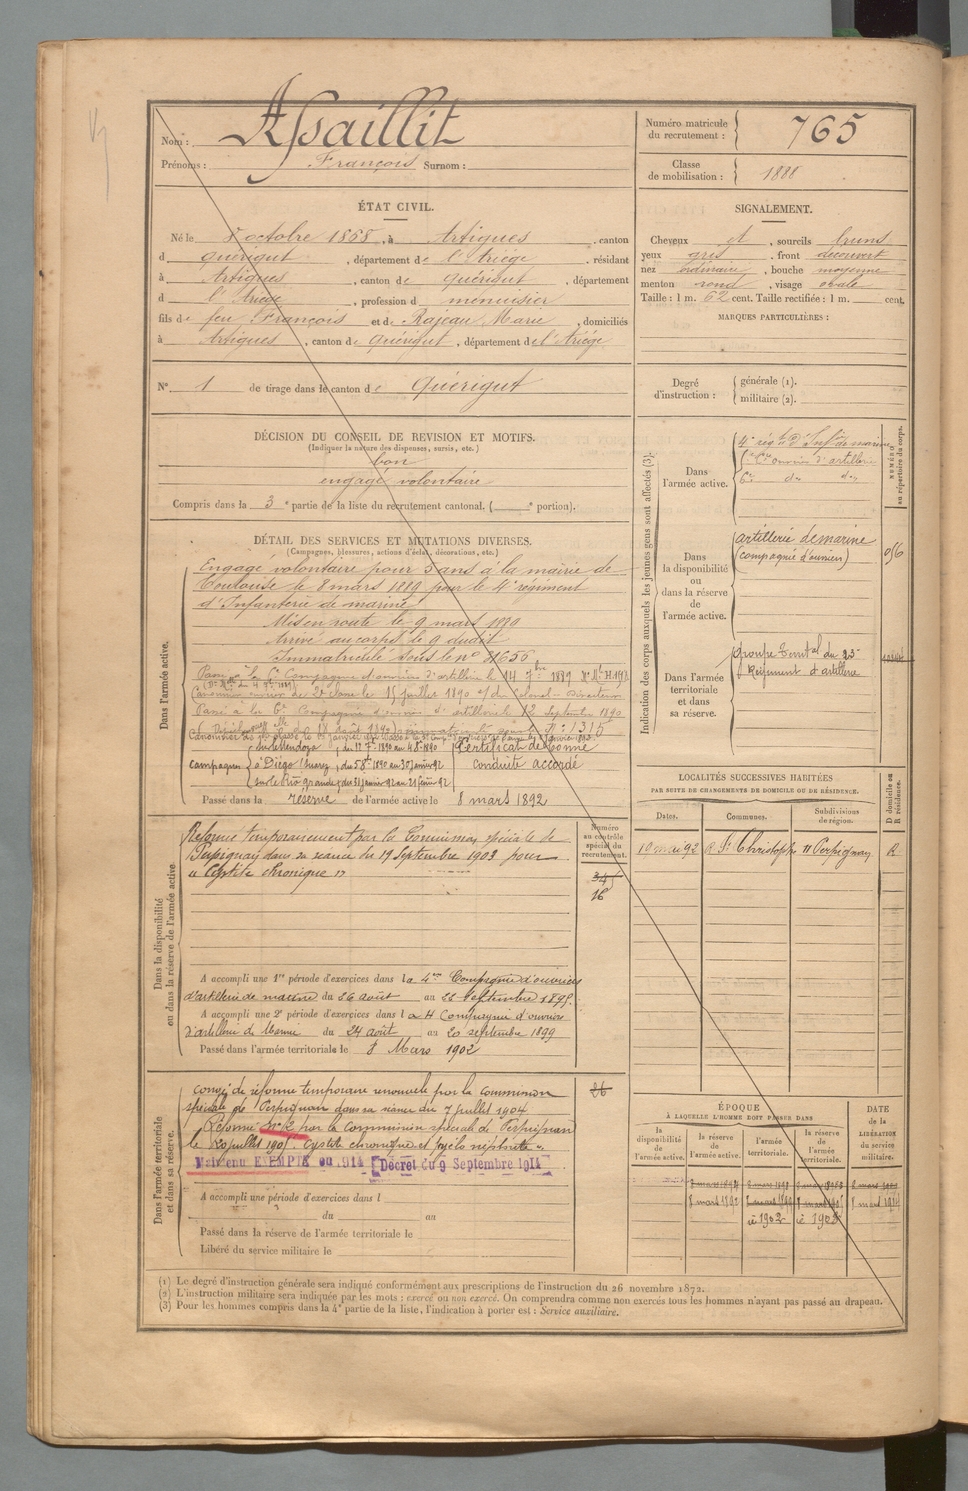 Nom : Assaillit
Prénoms : François Surnom :
Numéro matricule du recrutement : 765
Classe de mobilisation : 1888
ÉTAT CIVIL.
Né le 8 octobre 1868, à Artigues, canton
d Quérigut, département de l'Ariège, résidant
à Artigues, canton de Quérigut, département
d l'Ariège, profession d menuisier
fils de feu François et de Rajeau Marie, domiciliés
à Artigues, canton de Quérigut, département de l'Ariège
N° 1 de tirage dans le canton de Quérigut
SIGNALEMENT.
Cheveux et, sourcils bruns
yeux gris, front découvert
nez ordinaire, bouche moyenne
menton rond, visage ovale
Taille : 1 m. 62 cent. Taille rectifiée : 1 m. cent.
MARQUES PARTICULIÈRES :
Degré d'instruction : générale (1).
militaire (2).
DÉCISION DU CONSEIL DE REVISION ET MOTIFS.
(Indiquer la nature des dispenses, sursis, etc.)
bon
engagé volontaire
Compris dans la 3e partie de la liste du recrutement cantonal. ( e portion).
DÉTAIL DES SERVICES ET MUTATIONS DIVERSES.
(Campagnes, blessures, actions d'éclat, décorations, etc.)
Dans l'armée active.
Engagé volontaire pour 5 ans à la mairie de
Toulouse le 8 mars 1889 pour le 4e régiment
d'Infanterie de marine
Mis en route le 9 mars
Arrivé au corps le 9 dudit
Immatriculé sous le n°
Passé à la Compagnie d'ouvriers d'artillerie le 14 7bre 1889
Canonnier ouvrier de 2e classe le 15 juillet 1890 Colonel-Directeur
Passé à la 6e Compagnie d'ouvriers d'artillerie le 12 Septembre 1890
n° 1315
Campagnes
du 12 7bre 1890 au 4 8bre 1890
à Diégo Suarez, du 5 8bre 1890 au 30 janvier 92
sur le Rio grande, du 31 janvier 92 au 21 février 92
Certificat de bonne
conduite accordé
Passé dans la réserve de l'armée active le 8 mars 1892
Indication des corps auxquels les jeunes gens sont affectés (3).
NUMÉRO au répertoire du corps.
Dans l'armée active.
4e régt d'Infie de marine
Cie ouvriers d'artillerie
6e do do
Dans la disponibilité ou dans la réserve de l'armée active.
artillerie de marine
(compagnie d'ouvriers)
Dans l'armée territoriale et dans sa réserve.
groupe territal du 23e
Régiment d'artillerie
LOCALITÉS SUCCESSIVES HABITÉES
PAR SUITE DE CHANGEMENTS DE DOMICILE OU DE RÉSIDENCE.
D domicile ou R résidence.
Dates. Communes. Subdivisions de région.
19 mai 92 R. St Christophe Perpignan R
Dans la disponibilité ou dans la réserve de l'armée active
Réformé temporairement par la Commission spéciale de
Perpignan dans sa séance du 19 Septembre 1903 pour
" Cystite chronique "
Numéro au contrôle spécial du recrutement.
345
16
A accompli une 1re période d'exercices dans la 4me Compagnie d'ouvriers
d'artillerie de marine du 26 août au 22 septembre 1895.
A accompli une 2e période d'exercices dans la 4 Compagnie d'ouvriers
d'artillerie de Marine du 24 août au 20 septembre 1899
Passé dans l'armée territoriale le 8 Mars 1902
Dans l'armée territoriale et dans sa réserve.
congé de réforme temporaire renouvelé par la commission
spéciale de Perpignan dans sa séance du 7 juillet 1904
Réformé n° 2 par la Commission spéciale de Perpignan
le 20 juillet 1905. Cystite chronique et
Maintenu EXEMPTÉ en 1914 [Décret du 9 Septembre 1914]
A accompli une période d'exercices dans l
du au
Passé dans la réserve de l'armée territoriale le
Libéré du service militaire le
ÉPOQUE
À LAQUELLE L'HOMME DOIT PASSER DANS
la disponibilité de l'armée active.
la réserve de l'armée active.
l'armée territoriale.
la réserve de l'armée territoriale.
DATE de la LIBÉRATION du service militaire.
8 mars 1892
1902
(1) Le degré d'instruction générale sera indiqué conformément aux prescriptions de l'instruction du 26 novembre 1872.
(2) L'instruction militaire sera indiquée par les mots : exercé ou non exercé. On comprendra comme non exercés tous les hommes n'ayant pas passé au drapeau.
(3) Pour les hommes compris dans la 4e partie de la liste, l'indication à porter est : Service auxiliaire.